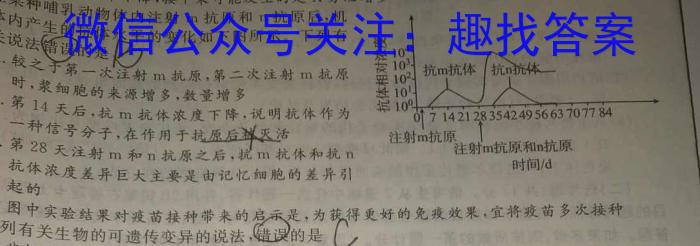 某种哺乳动物体内注射m抗原和n抗原后,机
体内产生的
关说法错误的是
微信公众号关注：趣找答案
.较之于第一次注射m抗原,第二次注射m抗原
时,浆细胞的来源增多,数量增多
.第14天后,抗m抗体浓度下降,说明抗体作为
一种信号分子,在作用于抗原后被灭活
.第28天注射m和n抗原之后,抗m抗体和抗n
抗体浓度差异巨大主要是由记忆细胞的差异引
起的
.图中实验结果对疫苗接种带来的启示是,为获得更好的免疫效果,宜将疫苗多次接种
列有关生物的可遗传变异的说法,错误的是 C
抗体相对浓度
10³
10²
10¹
10⁰
抗m抗体 抗n抗体
0 7 14 21 28 35 42 49 56 63 70 77 84
注射m抗原
注射m抗原和n抗原
时间/d